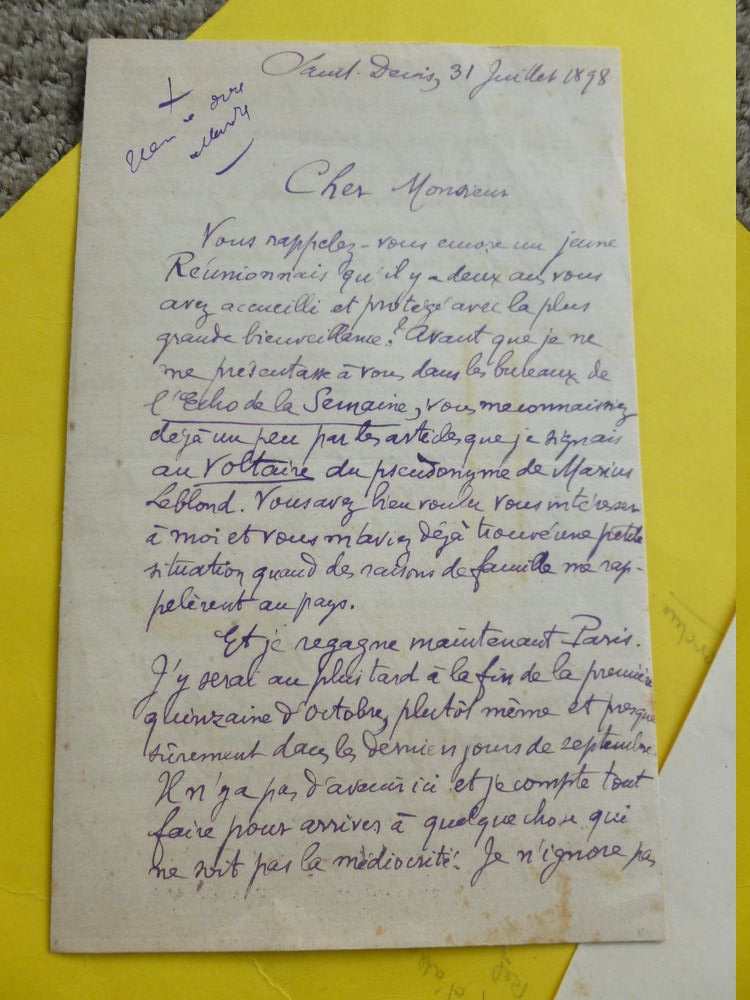 Saint-Denis, 31 Juillet 1898
Cher Monsieur
Vous rappelez-vous encore un jeune
Réunionnais qu'il y a deux ans vous
avez accueilli et protégé avec la plus
grande bienveillance? Avant que je ne
me présentasse à vous dans les bureaux de
l'Echo de la Semaine, vous me connaissiez
déjà un peu par les articles que je signais
au Voltaire du pseudonyme de Marius
Leblond. Vous avez bien voulu vous intéresser
à moi et vous m'aviez déjà trouvé une petite
situation quand des raisons de famille me rap-
pelèrent au pays.
Et je regagne maintenant Paris.
J'y serai au plus tard à la fin de la première
quinzaine d'octobre, plutôt même et presque
sûrement dans les derniers jours de septembre.
Il n'y a pas d'avenir ici et je compte tout
faire pour arriver à quelque chose qui
ne soit pas la médiocrité. Je n'ignore pas